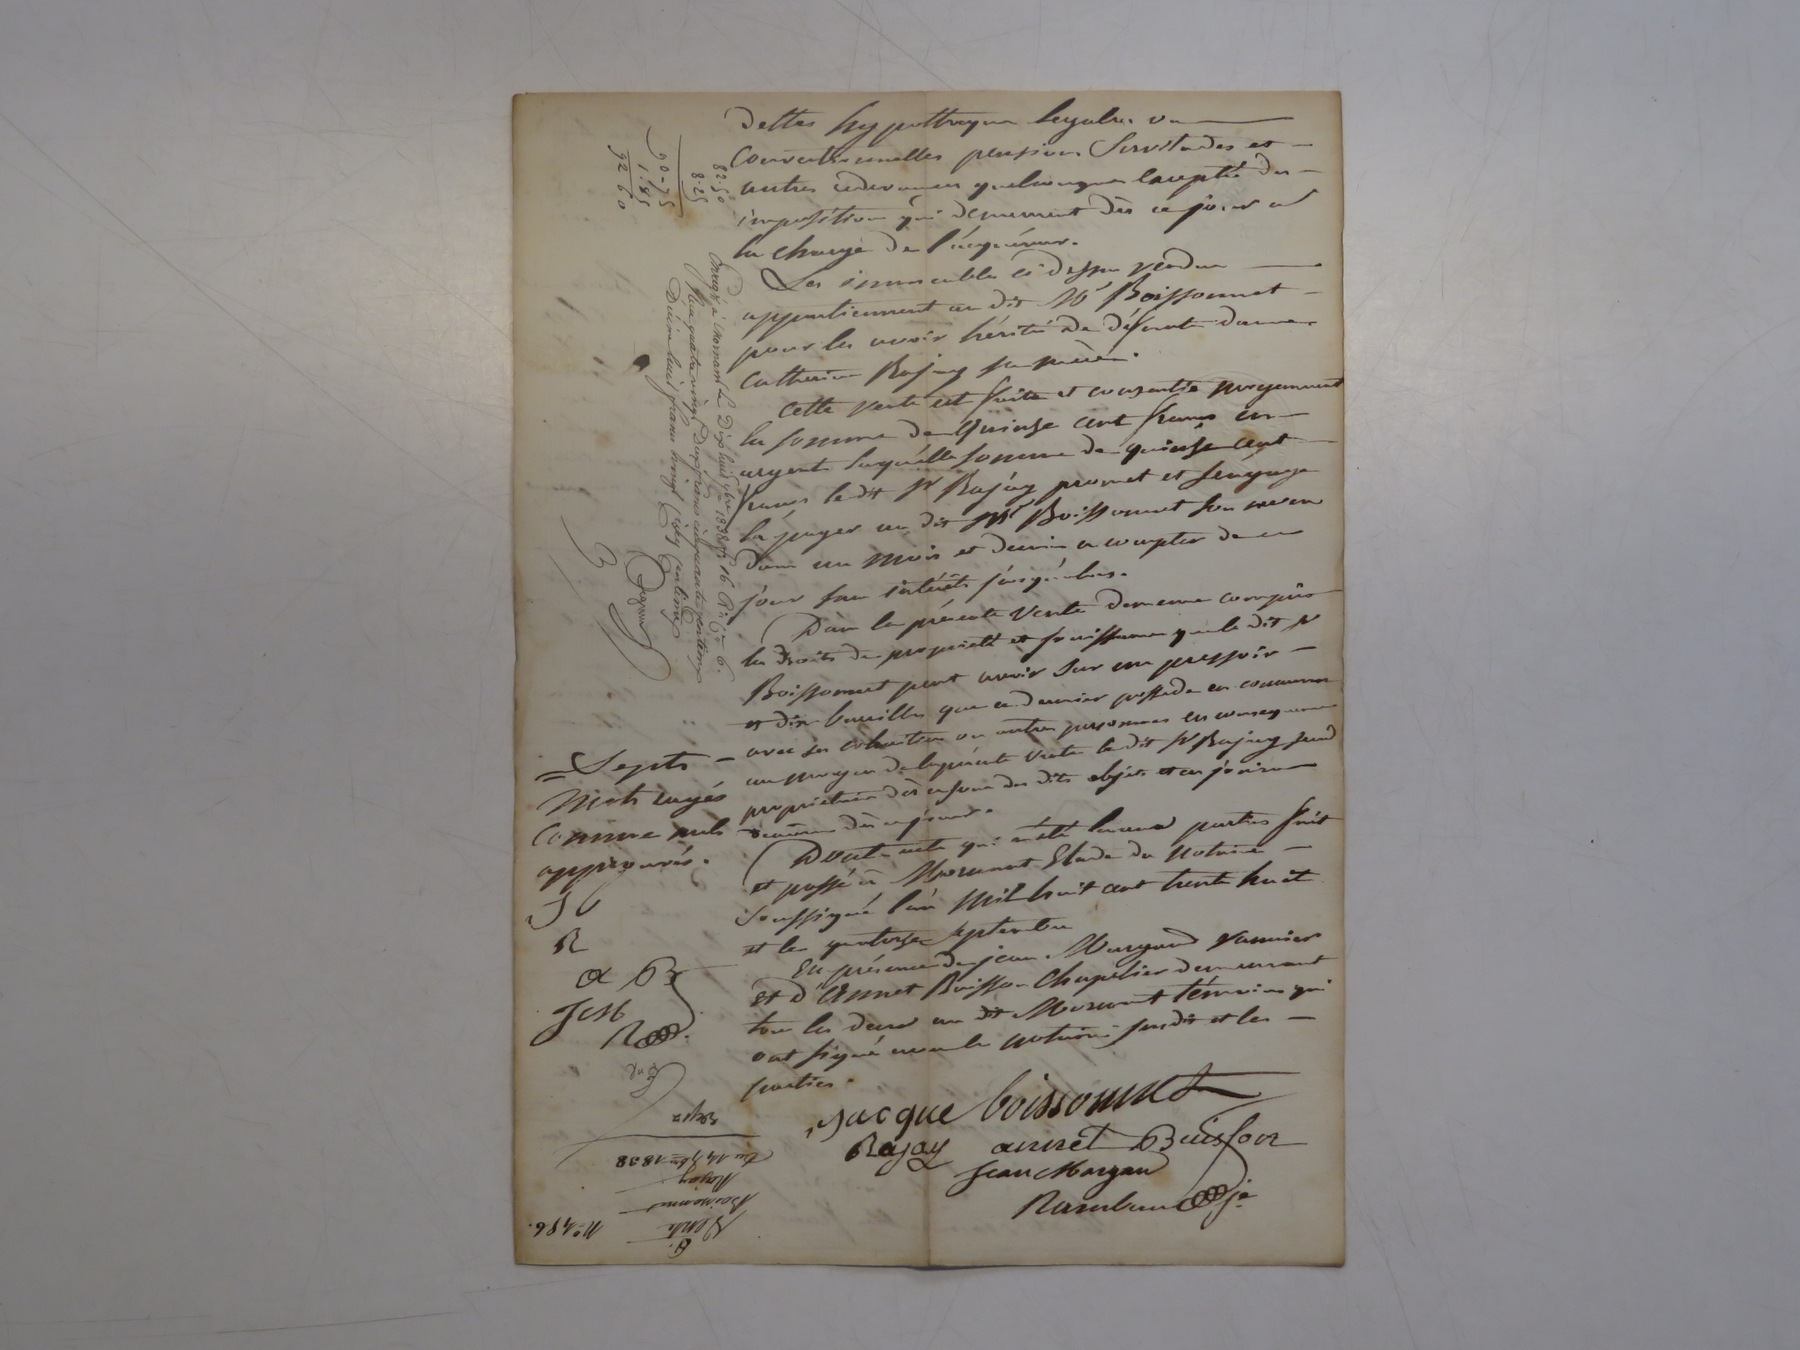 Dettes hypothèques legales ou
conventionnelles pensions Servitudes et
autres redevances quelconques excepté des
impositions qui demeurent dès ce jour a
la charge de l'acquéreur.
Les immeubles ci dessus vendus
appartiennent au dit Sr Boissonnet
pour les avoir hérité de défunte dame
Catherine Rajay sa mère.
Cette vente est faite et consentie moyennant
la somme de Quinze cent francs en
argent laquelle somme de quinze cent
francs le dit Sr Rajay promet et s'engage
la payer au dit Sr Boissonnet son neveu
dans un mois et demi a compter de ce
jour sans intérêts jusqu'alors.
Dans la présente Vente demeure compris
les droits de propriété et jouissance que le dit Sr
Boissonnet peut avoir sur un pressoir
et dix bareilles que ce dernier possede en commun
avec ses cohéritiers ou autres personnes en consequence
au moyen de la présente Vente le dit Sr Rajay sera
propriétaire dès ce jour des dits objets et en jouira
de même dès ce jour.
Dont acte qui a été lu aux parties fait
et passé à Mornant Etude du Notaire
Soussigné l'an Mil huit cent trente huit
et le quatorze septembre
En présence de jean Margand vannier
et d'Annet Buisson Chapelier demeurant
tous les deux au dit Mornant témoins qui
ont signé avec le notaire susdit et les
parties.
jacque boissonnet
Rajay annet Buisson
Jean Margan
Rambaud je
= Septs
Mots rayés
comme nuls
approuvés.
J b
R
a B
JeM
R
82-50
8.25
90-75
1.85
92 60
Enregé à Mornant Le Dix huit 7bre 1838 fo 16 Ro Ce 6.
Reçu quatre vingt Deux francs cinquante centimes
Décime huit francs vingt cinq centimes
No 486.
Vente
Boissonnet
Rajay
Du 14 7bre 1838